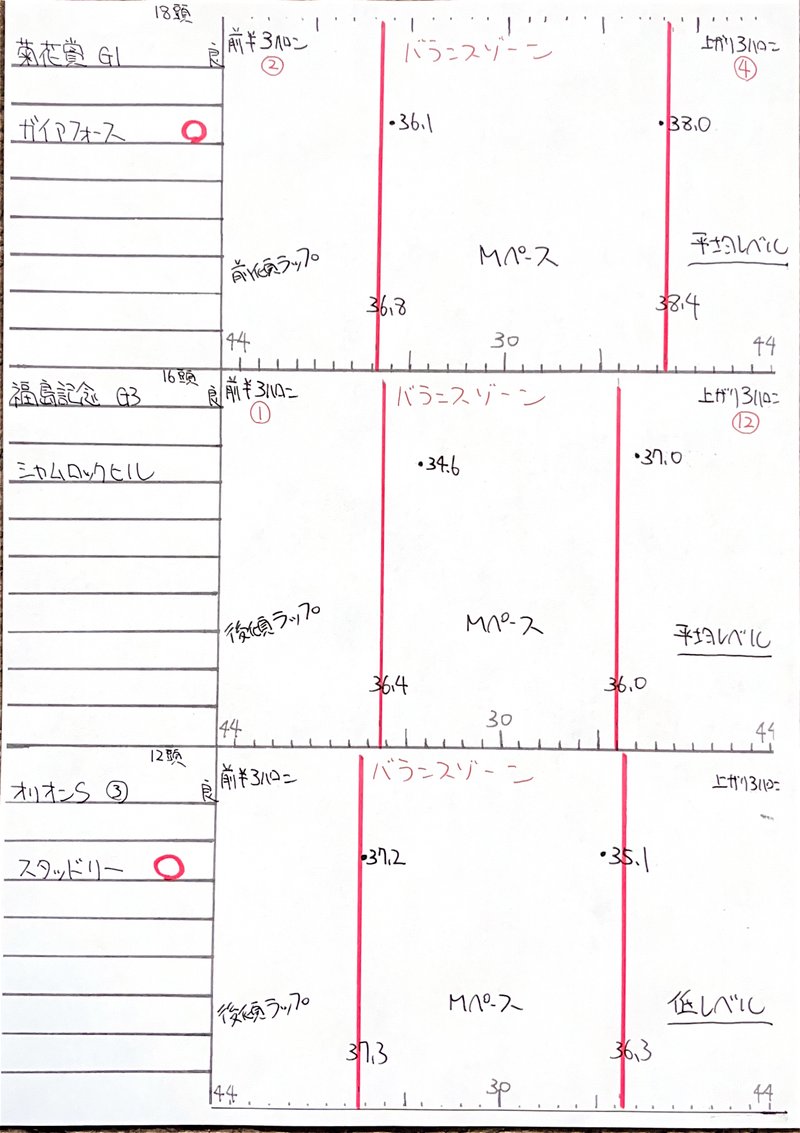 18頭
菊花賞 G1 良 前半3ハロン バランスゾーン 上がり3ハロン
② ④
ガイアフォース ○ ・36.1 ・38.0
前傾ラップ Mペース 平均レベル
36.8 38.4
44 30 44
16頭
福島記念 G3 良 前半3ハロン バランスゾーン 上がり3ハロン
① ⑫
シャムロックヒル ・34.6 ・37.0
後傾ラップ Mペース 平均レベル
36.4 36.0
44 30 44
12頭
オリオンS ③ 良 前半3ハロン バランスゾーン 上がり3ハロン
スタッドリー ○ ・37.2 ・35.1
後傾ラップ Mペース 低レベル
37.3 36.3
44 30 44